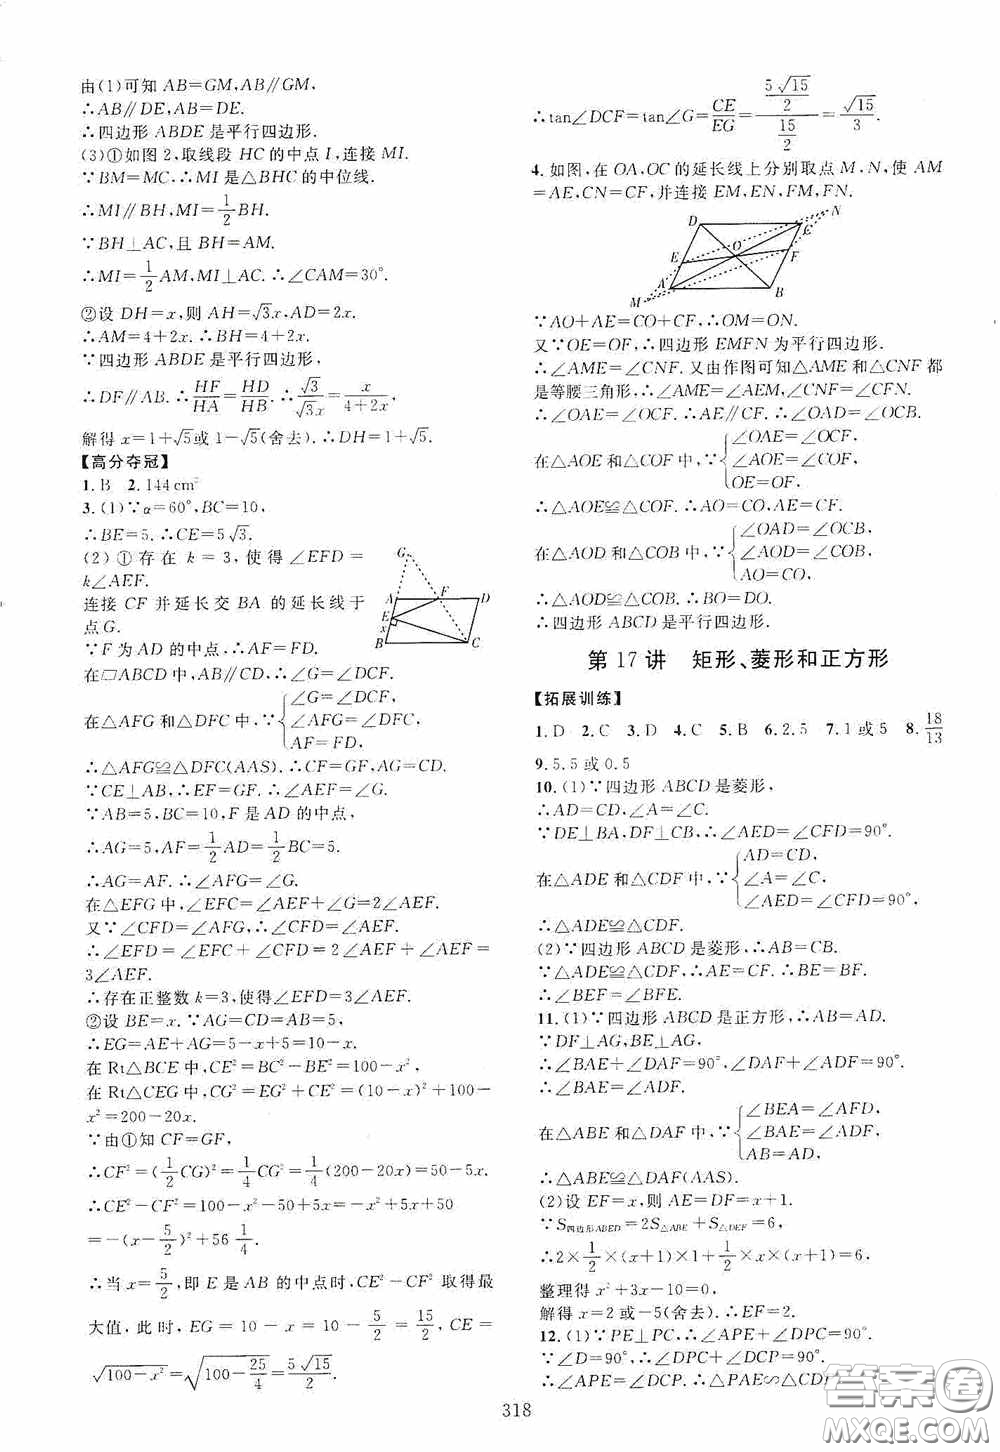 由(1)可知 AB=GM,AB∥GM,
∴AB∥DE,AB=DE.
∴四边形 ABDE 是平行四边形.
(3)①如图 2,取线段 HC 的中点 I,连接 MI.
∵BM=MC,∴MI 是△BHC 的中位线.
∴MI∥BH,MI=1/2 BH.
∵BH⊥AC,且 BH=AM.
∴MI=1/2 AM,MI⊥AC.∴∠CAM=30°.
②设 DH=x,则 AH=√3x,AD=2x.
∴AM=4+2x.∴BH=4+2x.
∵四边形 ABDE 是平行四边形,
∴DF∥AB.∴HF/HA=HD/HB.∴√3/√3x=x/4+2x,
解得 x=1+√5或 1-√5(舍去).∴DH=1+√5.
【高分夺冠】
1.B 2.144 cm²
3.(1)∵α=60°,BC=10,
∴BE=5.∴CE=5√3.
(2)①存在 k=3,使得∠EFD=
k∠AEF.
连接 CF 并延长交 BA 的延长线于
点G.
∵F 为 AD 的中点,∴AF=FD.
在□ABCD 中,AB∥CD,∴∠G=∠DCF.
在△AFG 和△DFC 中,∵{∠G=∠DCF,
∠AFG=∠DFC,
AF=FD,
∴△AFG≌△DFC(AAS).∴CF=GF,AG=CD.
∵CE⊥AB,∴EF=GF.∴∠AEF=∠G.
∵AB=5,BC=10,F 是 AD 的中点,
∴AG=5,AF=1/2 AD=1/2 BC=5.
∴AG=AF.∴∠AFG=∠G.
在△EFG 中,∠EFC=∠AEF+∠G=2∠AEF.
又∵∠CFD=∠AFG,∴∠CFD=∠AEF.
∴∠EFD=∠EFC+∠CFD=2∠AEF+∠AEF=
3∠AEF.
∴存在正整数 k=3,使得∠EFD=3∠AEF.
②设 BE=x.∵AG=CD=AB=5,
∴EG=AE+AG=5-x+5=10-x.
在 Rt△BCE 中,CE²=BC²-BE²=100-x².
在 Rt△CEG 中,CG²=EG²+CE²=(10-x)²+100-
x²=200-20x.
∵由①知 CF=GF,
∴CF²=(1/2 CG)²=1/4 CG²=1/4(200-20x)=50-5x.
∴CE²-CF²=100-x²-50+5x=-x²+5x+50
=-(x-5/2)²+56 1/4.
∴当 x=5/2,即 E 是 AB 的中点时,CE²-CF² 取得最
大值,此时,EG=10-x=10-5/2=15/2,CE=
√100-x²=√100-25/4=5√15/2.
G
A F D
E
x
B C
∴tan∠DCF=tan∠G=CE/EG=5√15/2/15/2=√15/3.
4.如图,在 OA,OC 的延长线上分别取点 M,N,使 AM
=AE,CN=CF,并连接 EM,EN,FM,FN.
D N
E O F
A
M B
∵AO+AE=CO+CF,∴OM=ON.
又∵OE=OF,∴四边形 EMFN 为平行四边形.
∴∠AME=∠CNF.又由作图可知△AME 和△CNF 都
是等腰三角形,∴∠AME=∠AEM,∠CNF=∠CFN.
∴∠OAE=∠OCF.∴AE∥CF.∴∠OAD=∠OCB.
在△AOE 和△COF 中,∵{∠OAE=∠OCF,
∠AOE=∠COF,
OE=OF,
∴△AOE≌△COF.∴AO=CO,AE=CF.
在△AOD 和△COB 中,∵{∠OAD=∠OCB,
∠AOD=∠COB,
AO=CO,
∴△AOD≌△COB.∴BO=DO.
∴四边形 ABCD 是平行四边形.
第 17 讲 矩形、菱形和正方形
【拓展训练】
1.D 2.C 3.D 4.C 5.B 6.2.5 7.1 或 5 8.18/13
9.5.5 或 0.5
10.(1)∵四边形 ABCD 是菱形,
∴AD=CD,∠A=∠C.
∵DE⊥BA,DF⊥CB,∴∠AED=∠CFD=90°.
在△ADE 和△CDF 中,∵{AD=CD,
∠A=∠C,
∠AED=∠CFD=90°,
∴△ADE≌△CDF.
(2)∵四边形 ABCD 是菱形,∴AB=CB.
∵△ADE≌△CDF,∴AE=CF.∴BE=BF.
∴∠BEF=∠BFE.
11.(1)∵四边形 ABCD 是正方形,∴AB=AD.
∵DF⊥AG,BE⊥AG,
∴∠BAE+∠DAF=90°,∠DAF+∠ADF=90°.
∴∠BAE=∠ADF.
在△ABE 和△DAF 中,∵{∠BEA=∠AFD,
∠BAE=∠ADF,
AB=AD,
∴△ABE≌△DAF(AAS).
(2)设 EF=x,则 AE=DF=x+1.
∵S四边形ABED=2S△ABE+S△DEF=6,
∴2×1/2×(x+1)×1+1/2×x×(x+1)=6.
整理得 x²+3x-10=0.
解得 x=2 或-5(舍去).∴EF=2.
12.(1)∵PE⊥PC,∴∠APE+∠DPC=90°.
∵∠D=90°,∴∠DPC+∠DCP=90°.
∴∠APE=∠DCP.∴△PAE∽△CDP.
318
答案圈
MXQE.COM